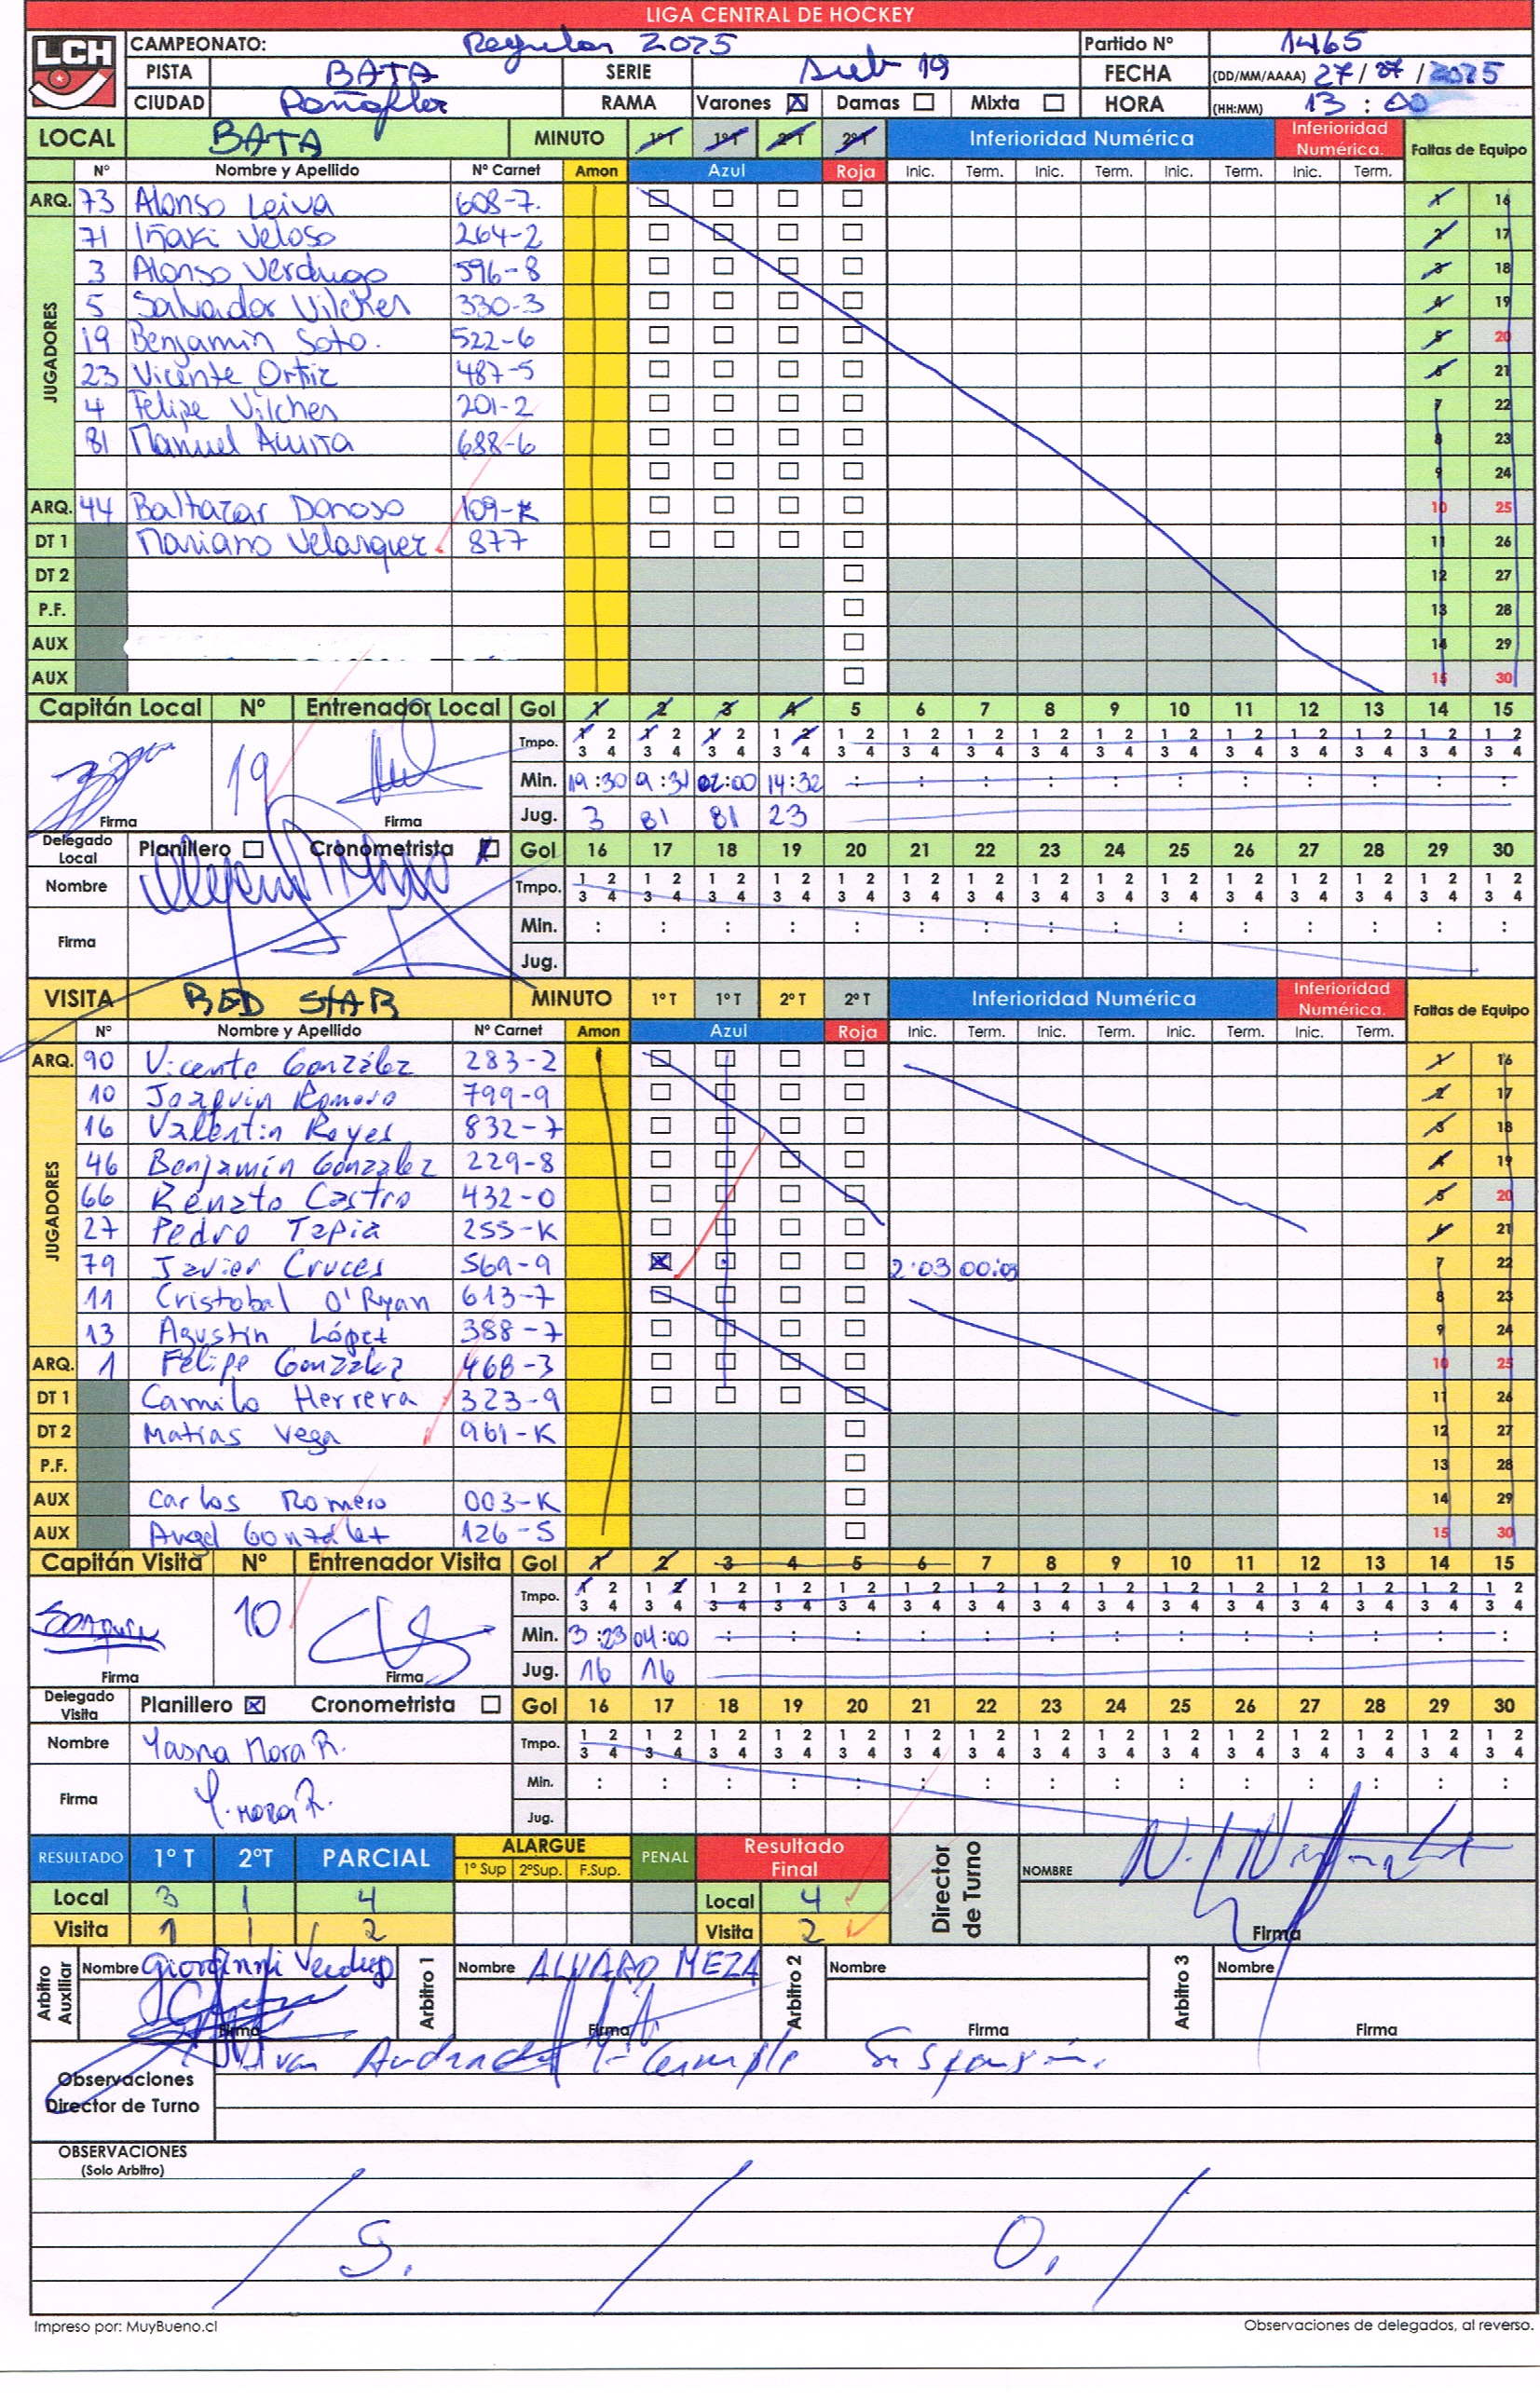 LIGA CENTRAL DE HOCKEY
LCH
CAMPEONATO: Regular 2025 Partido Nº 1465
PISTA BATA SERIE Sub 19 FECHA (DD/MM/AAAA) 27/07/2025
CIUDAD Peñaflor RAMA Varones ☒ Damas ☐ Mixta ☐ HORA (HH:MM) 13:00
LOCAL BATA MINUTO 1ºT 1ºT 2ºT 2ºT Inferioridad Numérica Inferioridad Numérica. Faltas de Equipo
Nº Nombre y Apellido Nº Carnet Amon Azul Roja Inic. Term. Inic. Term. Inic. Term. Inic. Term.
JUGADORES
ARQ. 73 Alonso Leiva 608-7. 1 16
71 Iñaki Veloso 264-2 2 17
3 Alonso Verdugo 596-8 3 18
5 Salvador Vilches 330-3 4 19
19 Benjamin Soto. 522-6 5 20
23 Vicente Ortiz 487-5 6 21
4 Felipe Vilches 201-2 7 22
81 Manuel Acuña 688-6 8 23
9 24
ARQ. 44 Baltazar Donoso 109-K 10 25
DT 1 Mariano Velasquez 877 11 26
DT 2 12 27
P.F. 13 28
AUX 14 29
AUX 15 30
Capitán Local Nº Entrenador Local Gol 1 2 3 4 5 6 7 8 9 10 11 12 13 14 15
Tmpo. 1 2 3 4 1 2 3 4 1 2 3 4 1 2 3 4 1 2 3 4 1 2 3 4 1 2 3 4 1 2 3 4 1 2 3 4 1 2 3 4 1 2 3 4 1 2 3 4 1 2 3 4 1 2 3 4 1 2 3 4
19 Min. 19:30 9:31 02:00 14:32 : : : : : : : : : : :
Firma Firma Jug. 3 81 81 23
Delegado Local Planillero ☐ Cronometrista ☒ Gol 16 17 18 19 20 21 22 23 24 25 26 27 28 29 30
Nombre Tmpo. 1 2 3 4 1 2 3 4 1 2 3 4 1 2 3 4 1 2 3 4 1 2 3 4 1 2 3 4 1 2 3 4 1 2 3 4 1 2 3 4 1 2 3 4 1 2 3 4 1 2 3 4 1 2 3 4 1 2 3 4
Firma Min. : : : : : : : : : : : : : : :
Jug.
VISITA RED STAR MINUTO 1ºT 1ºT 2ºT 2ºT Inferioridad Numérica Inferioridad Numérica. Faltas de Equipo
Nº Nombre y Apellido Nº Carnet Amon Azul Roja Inic. Term. Inic. Term. Inic. Term. Inic. Term.
JUGADORES
ARQ. 90 Vicente González 283-2 1 16
10 Joaquin Romero 799-9 2 17
16 Valentin Reyes 832-7 3 18
46 Benjamín Gonzalez 229-8 4 19
66 Renato Castro 432-0 5 20
27 Pedro Tapia 255-K 6 21
79 Javier Cruces 569-9 ☒ 2:03 00:03 7 22
11 Cristobal O'Ryan 613-7 8 23
13 Agustin López 388-7 9 24
ARQ. 1 Felipe Gonzalez 468-3 10 25
DT 1 Camilo Herrera 323-9 11 26
DT 2 Matias Vega 961-K 12 27
P.F. 13 28
AUX Carlos Romero 003-K 14 29
AUX Angel González 126-5 15 30
Capitán Visita Nº Entrenador Visita Gol 1 2 3 4 5 6 7 8 9 10 11 12 13 14 15
Tmpo. 1 2 3 4 1 2 3 4 1 2 3 4 1 2 3 4 1 2 3 4 1 2 3 4 1 2 3 4 1 2 3 4 1 2 3 4 1 2 3 4 1 2 3 4 1 2 3 4 1 2 3 4 1 2 3 4 1 2 3 4
10 Min. 3:23 04:00 : : : : : : : : : : : : :
Firma Firma Jug. 16 16
Delegado Visita Planillero ☒ Cronometrista ☐ Gol 16 17 18 19 20 21 22 23 24 25 26 27 28 29 30
Nombre Yasna Mora R. Tmpo. 1 2 3 4 1 2 3 4 1 2 3 4 1 2 3 4 1 2 3 4 1 2 3 4 1 2 3 4 1 2 3 4 1 2 3 4 1 2 3 4 1 2 3 4 1 2 3 4 1 2 3 4 1 2 3 4 1 2 3 4
Firma Y. Mora R. Min. : : : : : : : : : : : : : : :
Jug.
RESULTADO 1º T 2ºT PARCIAL ALARGUE 1º Sup 2ºSup. F.Sup. PENAL Resultado Final Director de Turno NOMBRE
Local 3 1 4 Local 4
Visita 1 1 2 Visita 2 Firma
Arbitro Auxiliar Nombre Giovanni Verdugo Arbitro 1 Nombre ALVARO MEZA Arbitro 2 Nombre Arbitro 3 Nombre
Firma Firma Firma Firma
Observaciones Director de Turno Ivan Andrade Cumple Suspensión.
OBSERVACIONES
(Solo Arbitro)
/ S. / O. /
Impreso por: MuyBueno.cl Observaciones de delegados, al reverso.